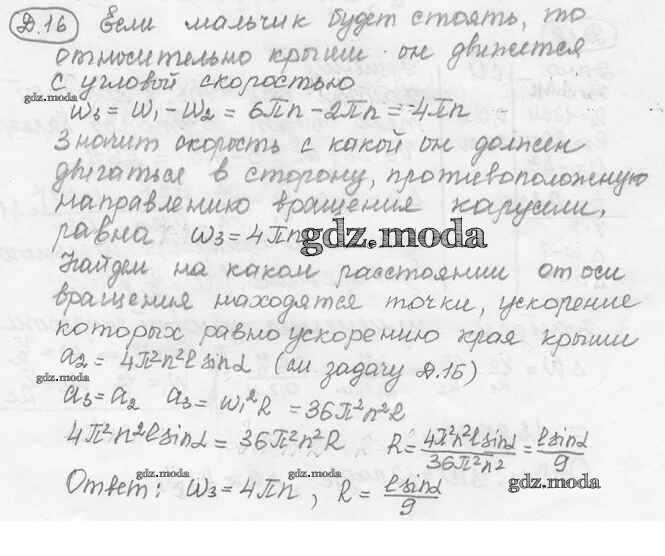 Д.16 Если мальчик будет стоять, то
относительно крыши он движется
с угловой скоростью
gdz.moda
ω₃ = ω₁ - ω₂ = 6πn - 2πn = 4πn
Значит скорость с какой он должен
двигаться в сторону, противоположную
направлению вращения карусели,
равна ω₃ = 4πn
gdz.moda
Найдем на каком расстоянии от оси
вращения находятся точки, ускорение
которых равно ускорению края крыши
a₂ = 4π²n²l sinα (см задачу Д.15)
gdz.moda
a₃ = a₂ a₃ = ω₁²R = 36π²n²R
4π²n²l sinα = 36π²n²R R = 4π²n²l sinα / 36π²n² = l sinα / 9
gdz.moda gdz.moda gdz.moda
Ответ: ω₃ = 4πn, R = l sinα / 9